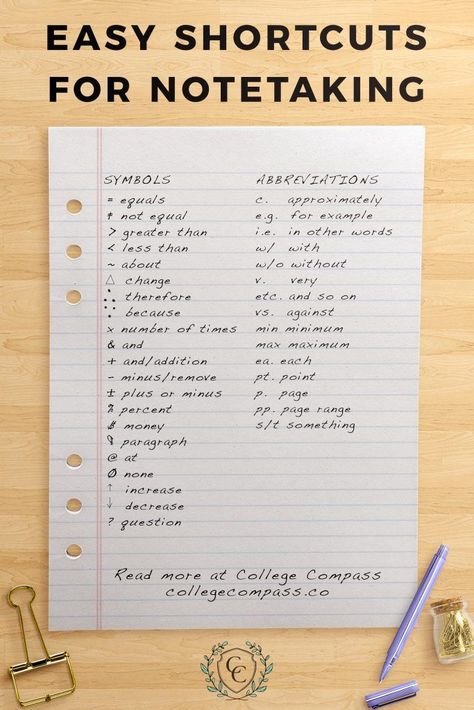 EASY SHORTCUTS
FOR NOTETAKING
SYMBOLS
= equals
≠ not equal
> greater than
< less than
~ about
△ change
∴ therefore
∵ because
× number of times
& and
+ and/addition
- minus/remove
± plus or minus
% percent
$ money
¶ paragraph
@ at
Ø none
↑ increase
↓ decrease
? question
ABBREVIATIONS
c. approximately
e.g. for example
i.e. in other words
w/ with
w/o without
v. very
etc. and so on
vs. against
min minimum
max maximum
ea. each
pt. point
p. page
pp. page range
s/t something
Read more at College Compass
collegecompass.co
CC